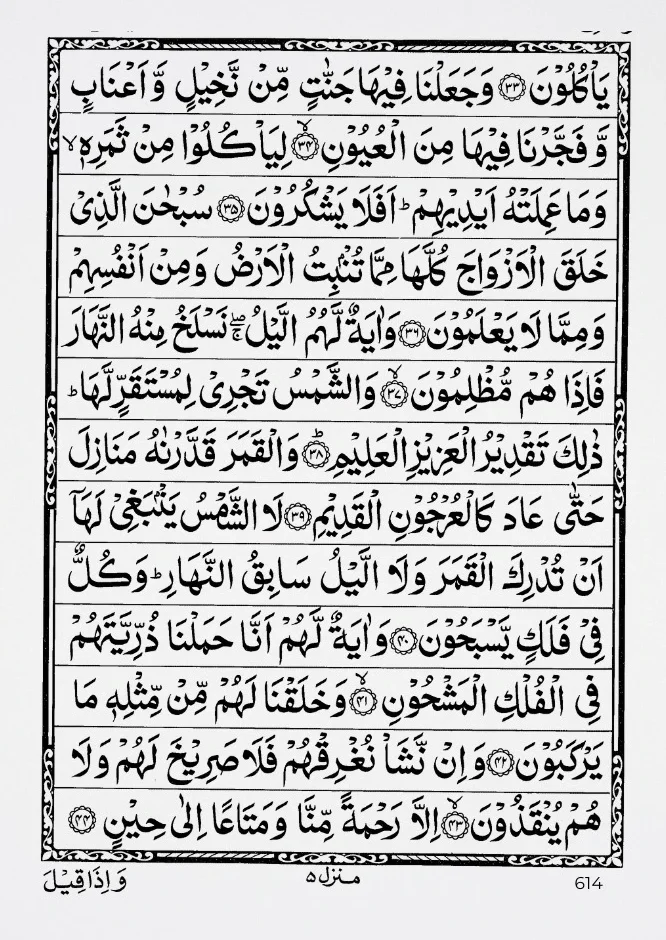 یَاۡکُلُوۡنَ ﴿۳۳﴾ وَجَعَلۡنَا فِیۡہَا جَنّٰتٍ مِّنۡ نَّخِیۡلٍ وَّ اَعۡنَابٍ
وَّ فَجَّرۡنَا فِیۡہَا مِنَ الۡعُیُوۡنِ ﴿ۙ۳۴﴾ لِیَاۡکُلُوۡا مِنۡ ثَمَرِہٖ ۙ
وَمَا عَمِلَتۡہُ اَیۡدِیۡہِمۡ ؕ اَفَلَا یَشۡکُرُوۡنَ ﴿۳۵﴾ سُبۡحٰنَ الَّذِیۡ
خَلَقَ الۡاَزۡوَاجَ کُلَّہَا مِمَّا تُنۡۢبِتُ الۡاَرۡضُ وَمِنۡ اَنۡفُسِہِمۡ
وَمِمَّا لَا یَعۡلَمُوۡنَ ﴿۳۶﴾ وَاٰیَۃٌ لَّہُمُ الَّیۡلُ ۚۖ نَسۡلَخُ مِنۡہُ النَّہَارَ
فَاِذَا ہُمۡ مُّظۡلِمُوۡنَ ﴿ۙ۳۷﴾ وَالشَّمۡسُ تَجۡرِیۡ لِمُسۡتَقَرٍّ لَّہَا ؕ
ذٰلِکَ تَقۡدِیۡرُ الۡعَزِیۡزِ الۡعَلِیۡمِ ﴿ؕ۳۸﴾ وَالۡقَمَرَ قَدَّرۡنٰہُ مَنَازِلَ
حَتّٰی عَادَ کَالۡعُرۡجُوۡنِ الۡقَدِیۡمِ ﴿۳۹﴾ لَا الشَّمۡسُ یَنۡۢبَغِیۡ لَہَاۤ
اَنۡ تُدۡرِکَ الۡقَمَرَ وَلَا الَّیۡلُ سَابِقُ النَّہَارِ ؕ وَکُلٌّ
فِیۡ فَلَکٍ یَّسۡبَحُوۡنَ ﴿۴۰﴾ وَاٰیَۃٌ لَّہُمۡ اَنَّا حَمَلۡنَا ذُرِّیَّتَہُمۡ
فِی الۡفُلۡکِ الۡمَشۡحُوۡنِ ﴿ۙ۴۱﴾ وَخَلَقۡنَا لَہُمۡ مِّنۡ مِّثۡلِہٖ مَا
یَرۡکَبُوۡنَ ﴿۴۲﴾ وَاِنۡ نَّشَاۡ نُغۡرِقۡہُمۡ فَلَا صَرِیۡخَ لَہُمۡ وَلَا
ہُمۡ یُنۡقَذُوۡنَ ﴿ۙ۴۳﴾ اِلَّا رَحۡمَۃً مِّنَّا وَمَتَاعًا اِلٰی حِیۡنٍ ﴿۴۴﴾
وَاِذَا قِیۡلَ
منزل ۵
614